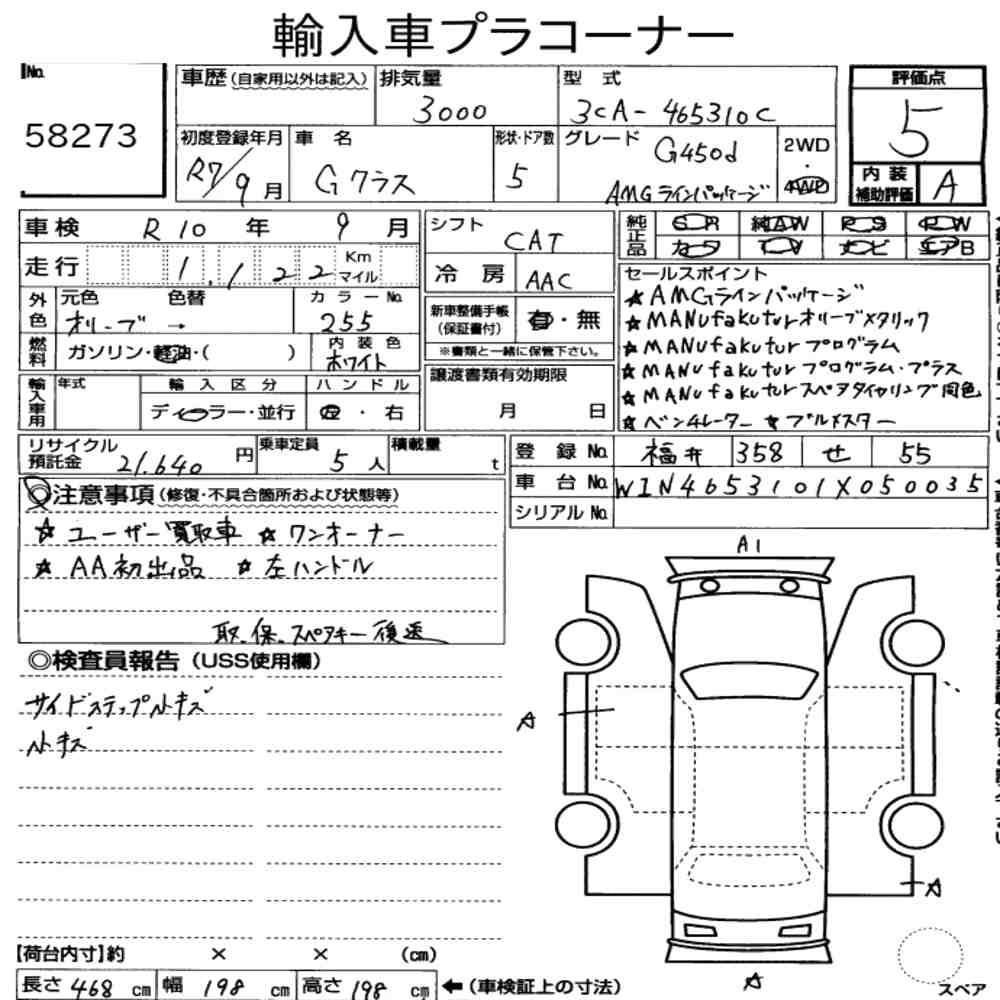 輸入車プラコーナー
No.
58273
車歴 (自家用以外は記入)
排気量
3000
型 式
3CA-465310C
評価点
5
内装補助評価
A
初度登録年月
R7/9月
車 名
Gクラス
形状・ドア数
5
グレード
G450d
AMGラインパッケージ
2WD
・
4WD
車検 R10年 9月
走行 1,122 Km マイル
外色
元色 色替
オリーブ →
カラーNo.
255
燃料
ガソリン・軽油・( )
内装色
ホワイト
輸入車用
年式
輸入区分
ディーラー・並行
ハンドル
左・右
リサイクル預託金
21,640円
乗車定員
5人
積載量
t
シフト
CAT
冷房
AAC
新車整備手帳
(保証書付)
有・無
※書類と一緒に保管下さい。
譲渡書類有効期限
月 日
純正品
SR 純AW PS PW
カワ TV ナビ エアB
セールスポイント
★AMGラインパッケージ
★MANufakuturオリーブメタリック
★MANufakuturプログラム
★MANufakuturプログラム・プラス
★MANufakuturスペアタイヤリング同色
★ベンチレーター ★ブルメスター
登録No. 福井 358 せ 55
車台No. W1N4653101X050035
シリアルNo.
◎注意事項 (修復・不具合箇所および状態等)
☆ ユーザー買取車 ☆ ワンオーナー
☆ AA初出品 ☆ 左ハンドル
取、保、スペアキー後送
◎検査員報告 (USS使用欄)
サイドステップ小キズ
小キズ
A1
A
A
A
スペア
【荷台内寸】約 × × (cm)
長さ 468 cm 幅 198 cm 高さ 198 cm ←(車検証上の寸法)